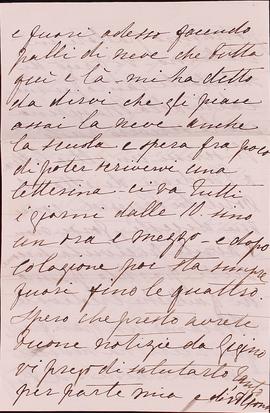 e fuori adesso facendo
palli di neve che butta
qui e la - mi ha detto
da dirvi che gli piace
assai la neve anche
la scuola e spera fra poco
di poter scrivervi una
letterina - ci va tutti
i giorni dalle 10. sino
un ora e mezzo - e dopo
colazione poi sta sempre
fuori fino le quattro.
Spero che presto avrete
buone notizie da Gigino
vi prego di salutarlo tanto
per parte mia e di